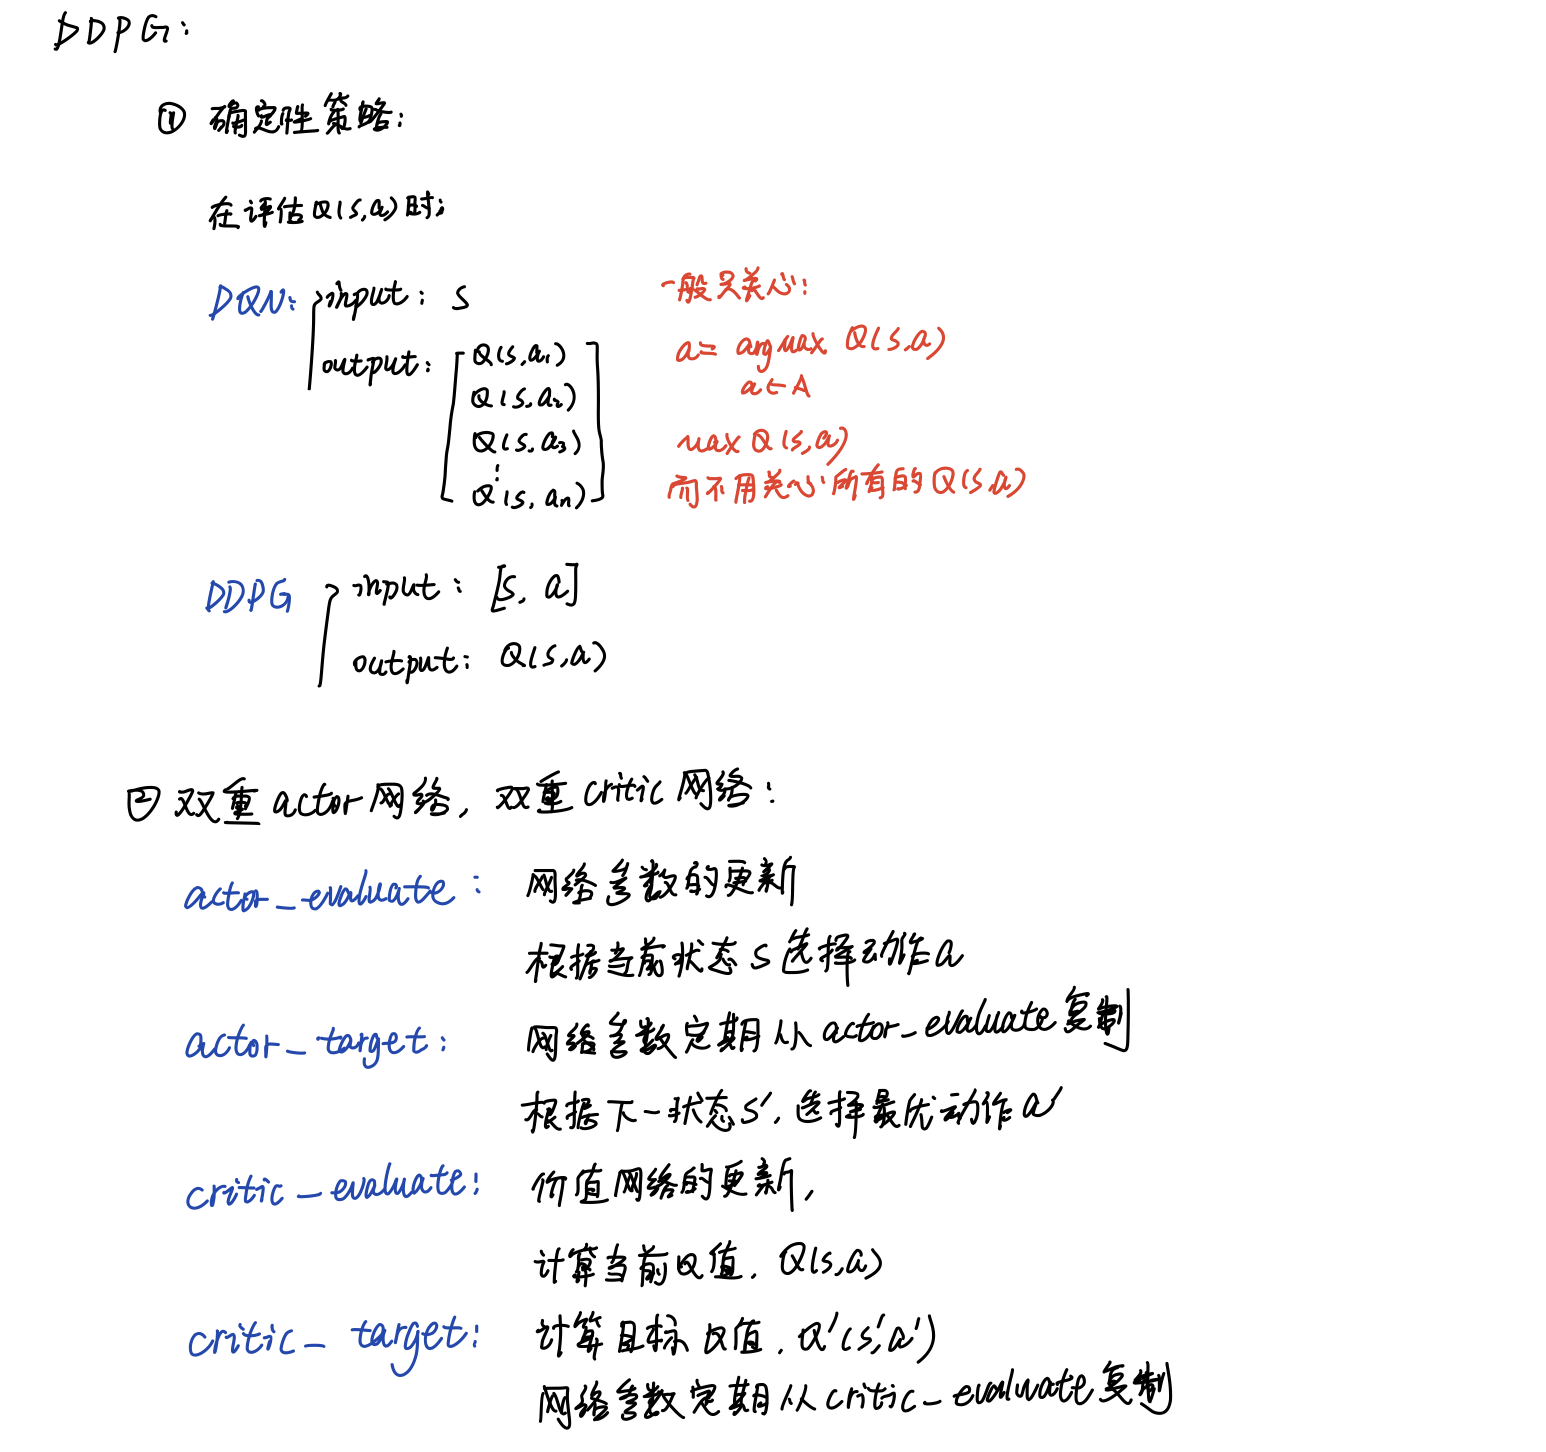 DDPG:
① 确定性策略:
在评估Q(s,a)时;
DQN: input: s
output: Q(s,a₁)
Q(s,a₂)
Q(s,a₃)
⋮
Q(s,aₙ)
一般只关心:
a = argmax Q(s,a)
a∈A
max Q(s,a)
而不用关心所有的Q(s,a)
DDPG input: [s, a]
output: Q(s,a)
② 双重actor网络, 双重critic网络:
actor_evaluate: 网络参数的更新
根据当前状态s选择动作a
actor_target: 网络参数定期从actor_evaluate复制
根据下一状态s′, 选择最优动作a′
critic_evaluate: 价值网络的更新,
计算当前Q值. Q(s,a)
critic_target: 计算目标Q值. Q′(s′,a′)
网络参数定期从critic_evaluate复制